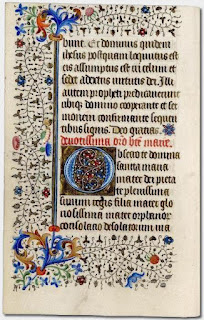 bunt. Et dominus quidem
ihesus postquam locutus est
eis assumptus est in celum et
sedet a dextris virtutis dei. Illi
autem profecti predicaverunt
ubique domino cooperante et ser
monem confirmante sequen
tibus signis. Deo gratias.
Devotissima oro bte marie.
Obsecro te domina
sancta maria
mater dei pieta
te plenissima
summi regis filia mater glo
riosissima mater orphanor
consolacio desolatorum via